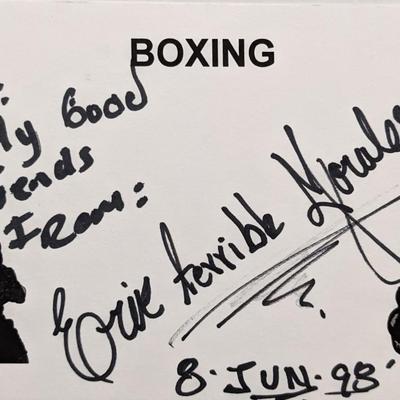 BOXING
:
y Good
iends
From:
Erik terrible Morales
8. JUN. 98.